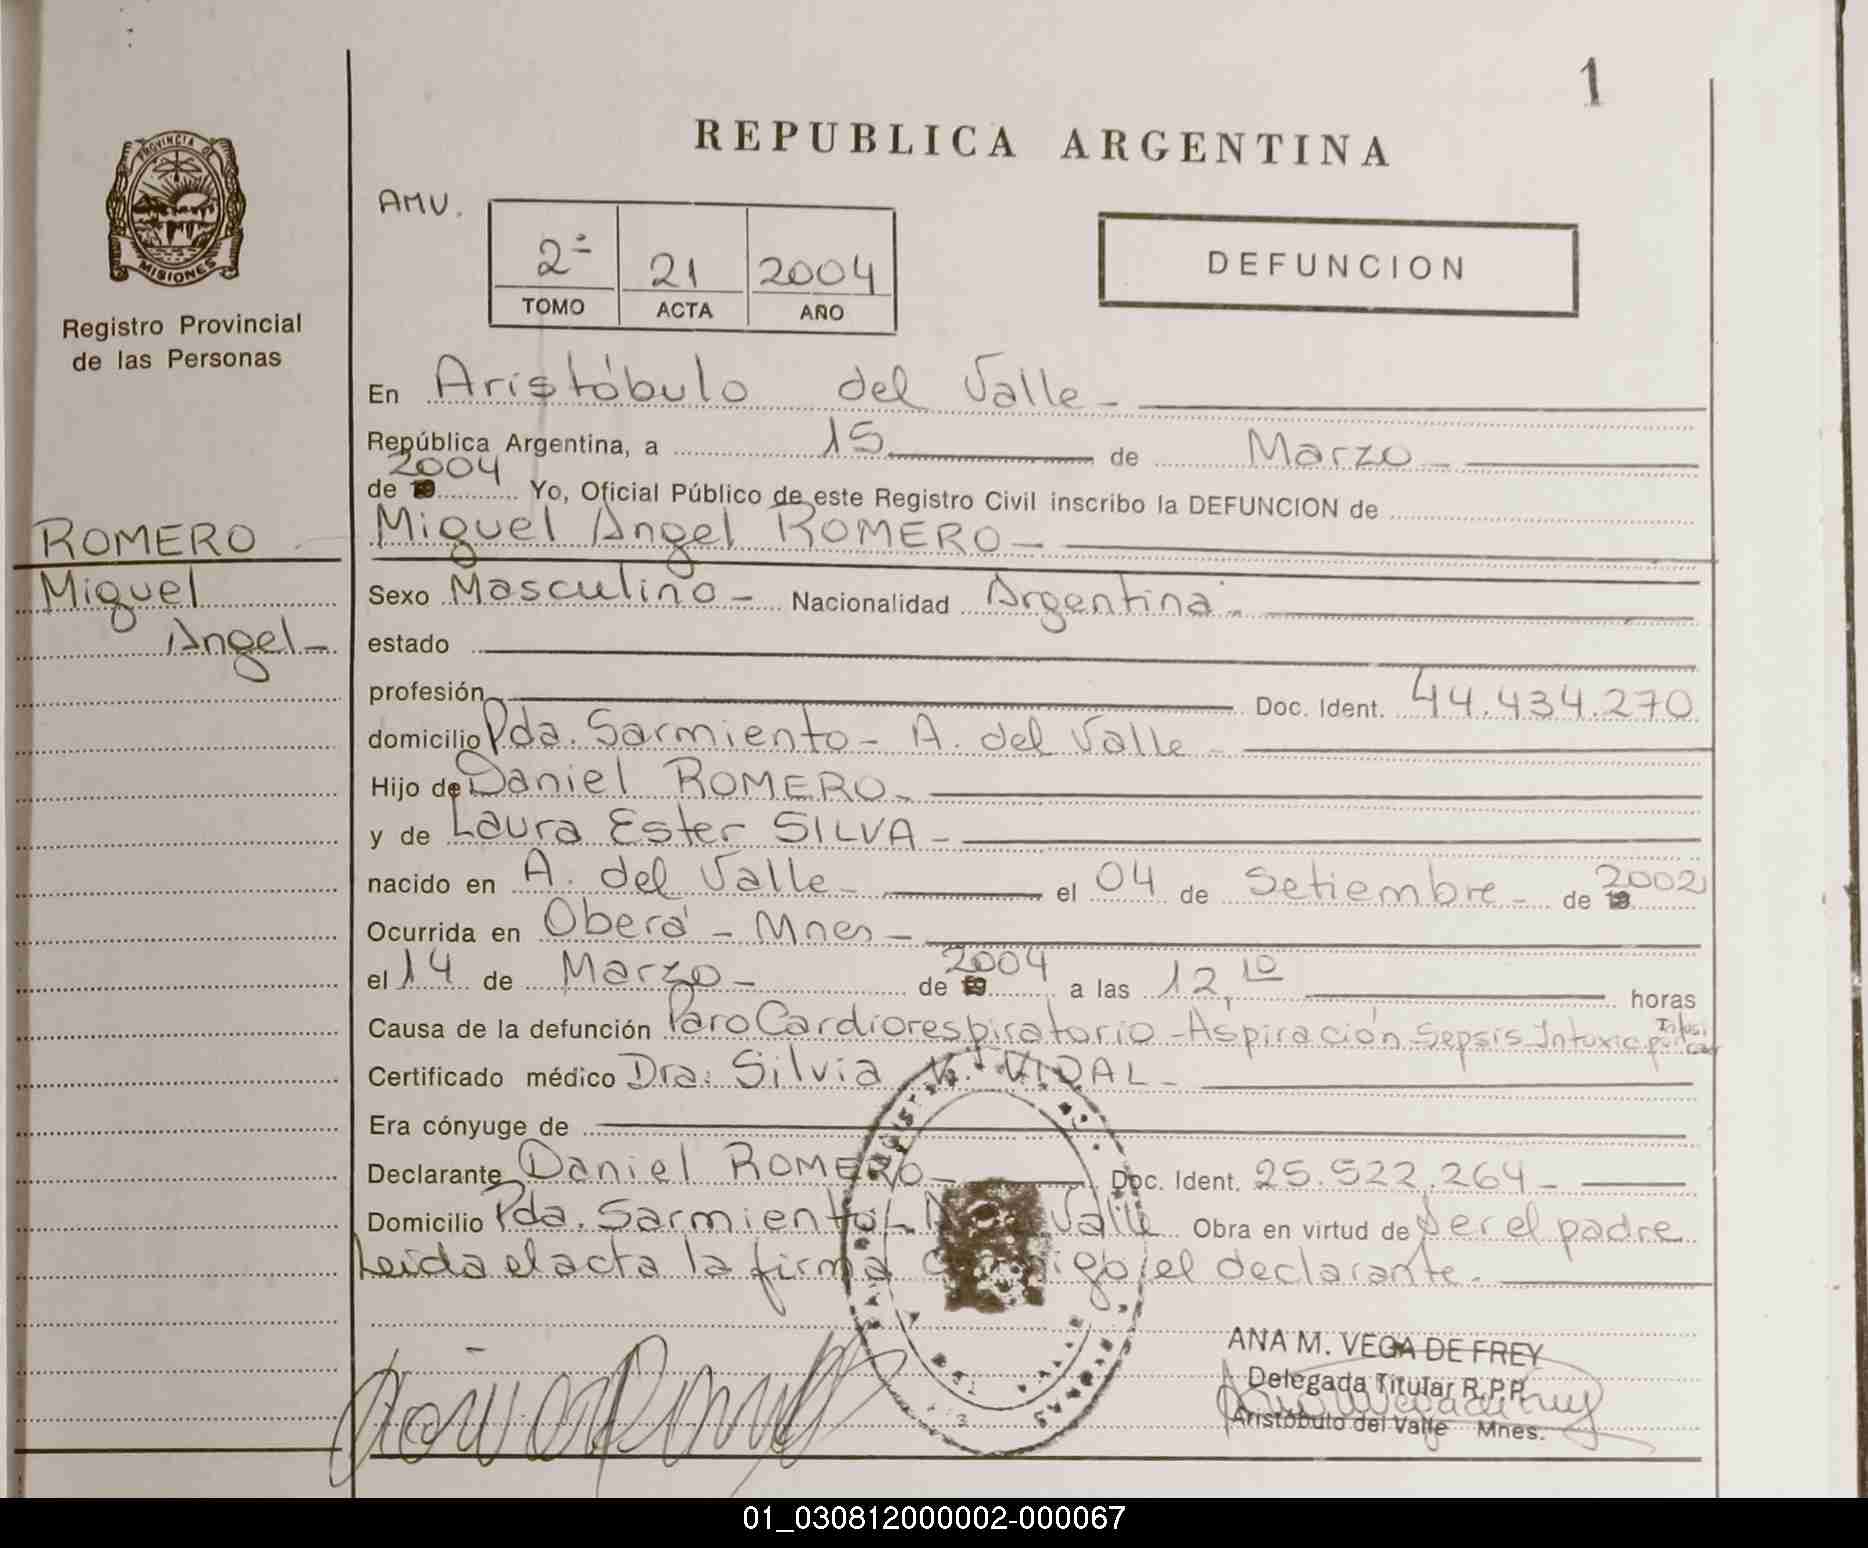 1
REPUBLICA ARGENTINA
PROVINCIA DE
MISIONES
Registro Provincial
de las Personas
AMU.
2º 21 2004
TOMO ACTA AÑO
DEFUNCION
En Aristóbulo del Valle -
República Argentina, a 15 de Marzo -
2004
de 19 Yo, Oficial Público de este Registro Civil inscribo la DEFUNCION de
ROMERO
Miguel
Angel -
Miguel Angel ROMERO -
Sexo Masculino - Nacionalidad Argentina -
estado
profesión Doc. Ident. 44.434.270
domicilio Pda. Sarmiento - A. del Valle -
Hijo de Daniel ROMERO -
y de Laura Ester SILVA -
nacido en A. del Valle - el 04 de Setiembre - de 19 2002
Ocurrida en Oberá - Mnes -
el 14 de Marzo - de 19 2004 a las 12,10 horas
Causa de la defunción Paro Cardiorespiratorio - Aspiración Sepsis Intoxic por
Certificado médico Dra. Silvia V. VIDAL -
Era cónyuge de
Declarante Daniel ROMERO - Doc. Ident. 25.522.264 -
Domicilio Pda. Sarmiento - Valle Obra en virtud de ser el padre
Leida el acta la firma el declarante.
ANA M. VEGA DE FREY
Delegada Titular R.P.P.
Aristóbulo del Valle Mnes.
01_030812000002-000067